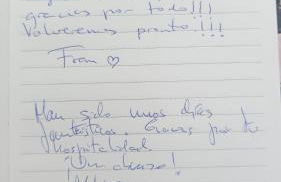 gracias por todo!!!
Volveremos pronto!!!
Fran ♡
Han sido unos días
fantásticos. Gracias por tu
hospitalidad
¡Un abrazo!